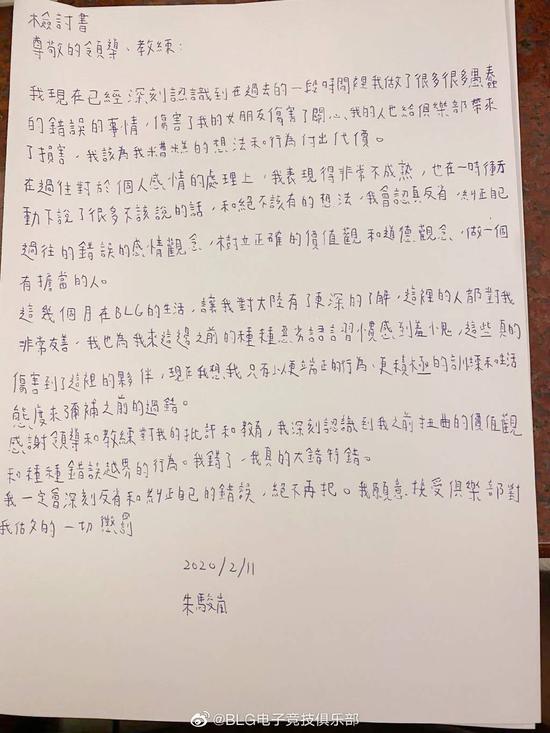 檢討書
尊敬的領導、教練：
我現在已經深刻認識到在過去的一段時間裡我做了很多很多愚蠢
的錯誤的事情，傷害了我的女朋友傷害了關心我的人也給俱樂部帶來
了損害，我該為我糟糕的想法和行為付出代價。
在過往對於個人感情的處理上，我表現得非常不成熟，也在一時衝
動下說了很多不該說的話，和絕不該有的想法，我會認真反省，糾正自己
過往的錯誤的感情觀念，樹立正確的價值觀和道德觀念、做一個
有擔當的人。
這幾個月在BLG的生活，讓我對大陸有了更深的了解，這裡的人都對我
非常友善，我也為我來這邊之前的種種惡劣語言習慣感到羞愧，這些真的
傷害到了這裡的夥伴，現在我想我只有以更端正的行為、更積極的訓練和生活
態度來彌補之前的過錯。
感謝領導和教練對我的批評和教育，我深刻認識到我之前扭曲的價值觀
和種種錯誤越界的行為。我錯了，我真的大錯特錯。
我一定會深刻反省和糾正自己的錯誤，絕不再犯。我願意接受俱樂部對
我做出的一切懲罰
2020/2/11
朱駿嵐
@BLG电子竞技俱乐部